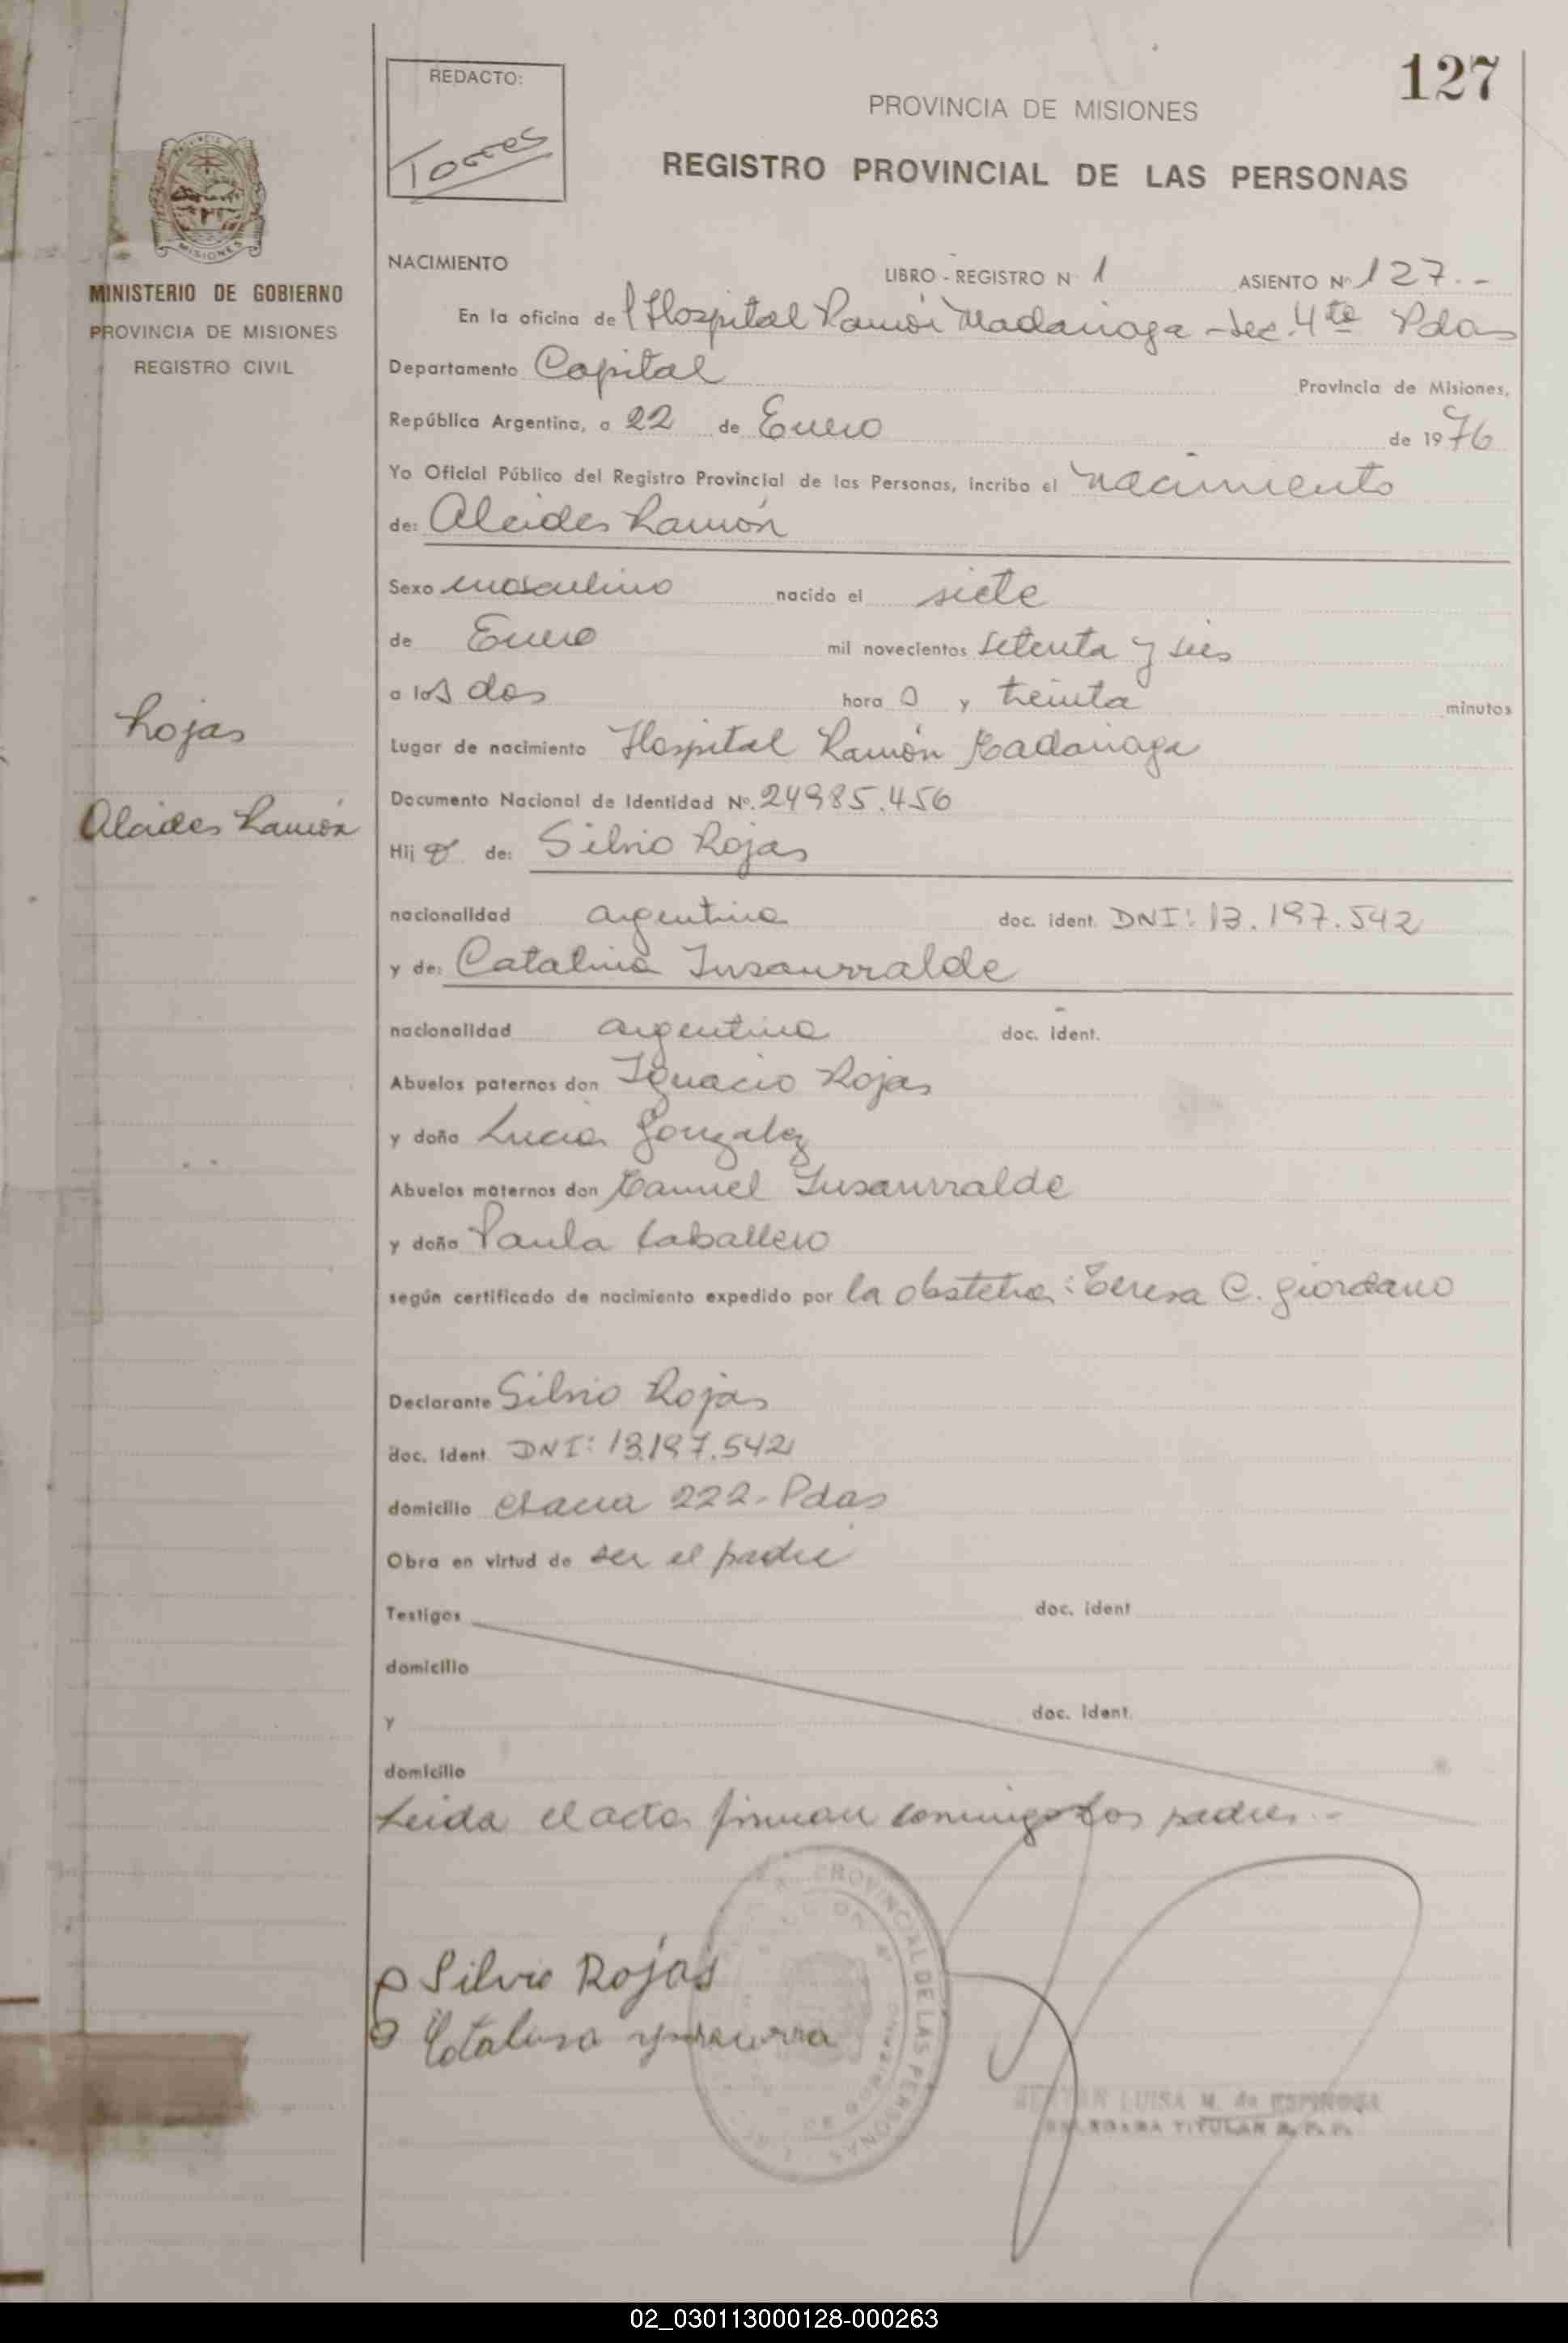 127
REDACTO:
Torres
PROVINCIA DE MISIONES
REGISTRO PROVINCIAL DE LAS PERSONAS
MISIONES
MINISTERIO DE GOBIERNO
PROVINCIA DE MISIONES
REGISTRO CIVIL
NACIMIENTO LIBRO - REGISTRO Nº 1 ASIENTO Nº 127.-
En la oficina del Hospital Ramón Madariaga - Sec. 4ta Pdas
Departamento Capital Provincia de Misiones,
República Argentina, a 22 de Enero de 1976
Yo Oficial Público del Registro Provincial de las Personas, incribo el nacimiento
de: Alcides Ramón
Sexo masculino nacido el siete
de Enero mil novecientos setenta y seis
a las dos hora s y treinta minutos
Rojas
Lugar de nacimiento Hospital Ramón Madariaga
Documento Nacional de Identidad Nº. 24985.456
Alcides Ramón
Hijo de: Silvio Rojas
nacionalidad argentina doc. ident. DNI: 13.197.542
y de: Catalina Insaurralde
nacionalidad argentina doc. ident. -
Abuelos paternos don Ignacio Rojas
y doña Lucia Gonzalez
Abuelos maternos don Manuel Insaurralde
y doña Paula Caballero
según certificado de nacimiento expedido por la obstetra: Teresa C. Giordano
Declarante Silvio Rojas
doc. ident. DNI: 13.197.542
domicilio chacra 222- Pdas
Obra en virtud de ser el padre
Testigos doc. ident
domicilio
y doc. ident.
domicilio
Leida el acta firman conmigo los padres.-
PROVINCIAL DE LAS PERSONAS
Silvio Rojas
LUISA M. de ESPINOSA
TITULAR R. P. P.
02_030113000128-000263